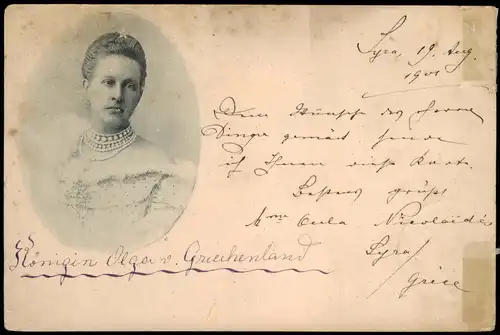 Syra, 19. Aug.
1901
Dem Wunsche des Herrn
Dinge gemäss sende
ich Ihnen diese Karte.
Bestens grüsst
Mme Nicolaïdes
Syra/
Grèce
Königin Olga v. Griechenland